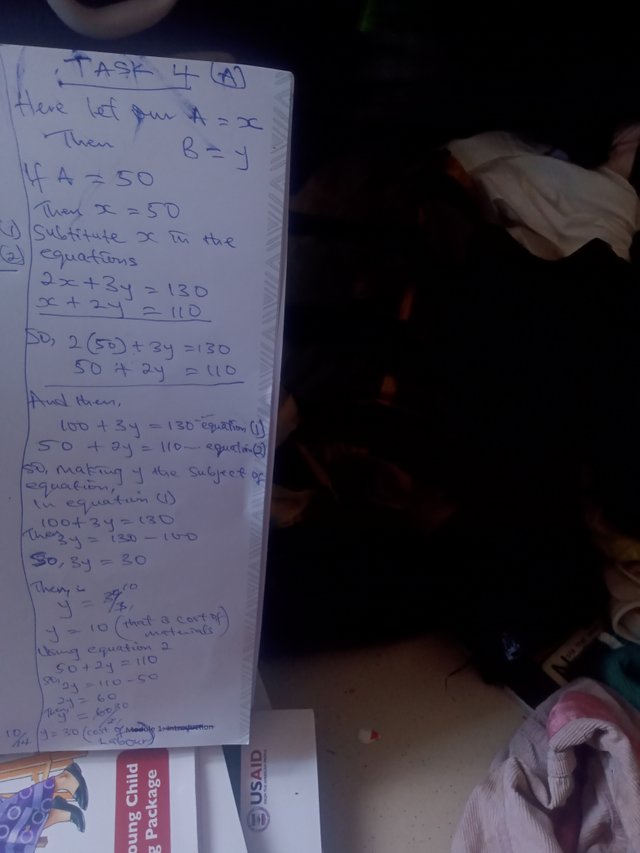 TASK 4 (A)
Here let our A = x
Then B = y
If A = 50
Then x = 50
(1) Substitute x in the
(2) equations
2x + 3y = 130
x + 2y = 110
So, 2(50) + 3y = 130
50 + 2y = 110
And then,
100 + 3y = 130 - equation (1)
50 + 2y = 110 - equation (2)
So, making y the subject of
equation,
in equation (1)
100 + 3y = 130
Then 3y = 130 - 100
So, 3y = 30
y = 30/3 10
y = 10 (that is cost of
materials)
Using equation 2
50 + 2y = 110
So, 2y = 110 - 50
2y = 60
Then y = 60/2 30
y = 30 (cost of
Labour)
Module 1: Introduction
oung Child
g Package
USAID